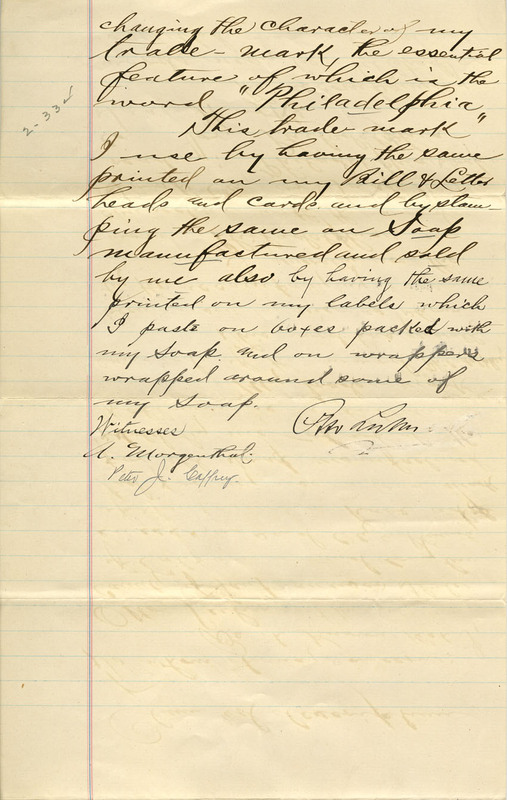 changing the character of my
trade-mark, the essential
feature of which is the
word "Philadelphia"
This trade mark
I use by having the same
printed on my Bill & Letter
heads and cards and by stam-
ping the same on Soap
manufactured and sold
by me also by having the same
printed on my labels which
I paste on boxes packed with
my Soap and on wrappers
wrapped around some of
my Soap.
Witnesses
A. Morgenthal.
Peter J.
2-33